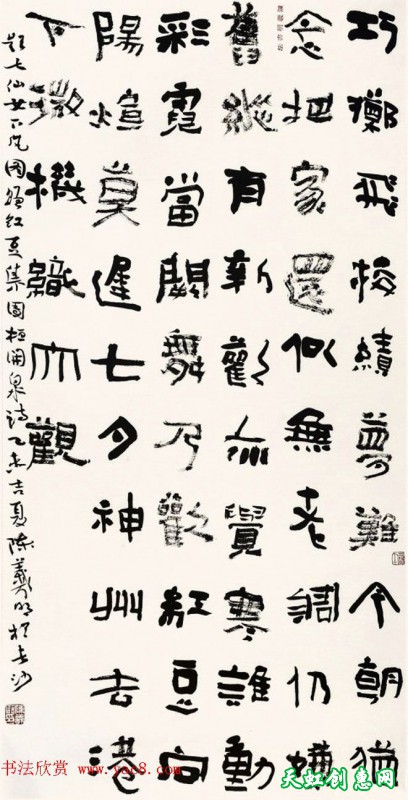 巧擲飛梭績夢難今朝猶
念把家還似無老獨仍嫌
舊縱有新歡亦覺寒誰動
彩霓當闕舞乃歡紅豆向
陽煊莫遲七夕神州去港
下機織大觀
題七仙女下凡圖紅豆集團泉詩乙未吉夏陳羲明於長沙
书法欣赏 www.yac8.com
天虹创惠网